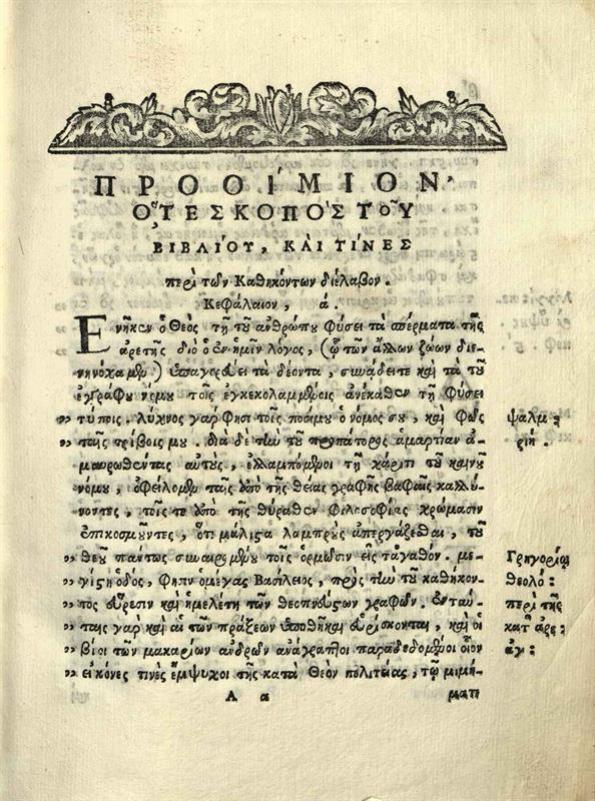 ΠΡΟΟΙ´ΜΙΟΝ·
Ὅ,ΤΕ ΣΚΟΠῸΣ ΤΟΥ͂
ΒΙΒΛΊΟΥ, ΚΑῚ ΤΊΝΕΣ
περὶ τῶν Καθηκόντων διέλαβον.
Κεφάλαιον, ά.
Ἐνῆκεν ὁ Θεὸς τῇ τοῦ ἀνθρώπου φύσει τὰ σπέρματα τῆς
ἀρετῆς διὸ ὁ ἐν ἡμῖν λόγος, (ᾧ τῶν ἄλλων ζώων διε-
νηνόχαμεν) ὑπαγορεύει τὰ δέοντα, συνάδει τε καὶ τὰ τοῦ
ἐγγράφου νόμου τοῖς ἐγκεκολαμμένοις ἀνέκαθεν τῇ φύσει
„ τύποις, λύχνος γάρ φησι τοῖς ποσί μου ὁ νόμος σου, καὶ φῶς
„ ταῖς τρίβοις μου. διὰ δὲ τὴν τοῦ προπάτορος ἁμαρτίαν ἀ-
μαυρωθέντας αὐτοὺς, ἐλλαμπόμενοι τῇ χάριτι τοῦ καινοῦ
νόμου, ὀφείλομεν ταῖς ἀπὸ τῆς θείας γραφῆς βαφαῖς καλλύ-
νοντες, τοῖς τε ἀπὸ τῆς θύραθεν Φιλοσοφίας χρώμασιν
ἐπικοσμοῦντες, ὅτι μάλιστα λαμπροὺς ἀπεργάζεσθαι, τοῦ
„ θεοῦ πάντως συναιρομένου τοῖς ὁρμῶσιν εἰς τἀγαθόν. με-
„ γίστη ὁδὸς, φησὶν ὁ μέγας Βασίλειος, πρὸς τὴν τοῦ καθήκον-
„ τος εὕρεσιν καὶ ἡ μελέτη τῶν θεοπνεύστων γραφῶν. ἐν ταύ-
„ ταις γὰρ καὶ αἱ τῶν πράξεων ὑποθῆκαι εὑρίσκονται, καὶ οἱ
„ βίοι τῶν μακαρίων ἀνδρῶν ἀνάγραπτοι παραδεδομένοι οἷον
„ εἰκόνες τινὲς ἔμψυχοι τῆς κατὰ Θεὸν πολιτείας, τῷ μιμή-
Α α ματι
ψαλμ:
ριή.
Γρηγορίῳ
θεολό:
περὶ τῆς
κατ᾽ ἀρε:
ἁγ: